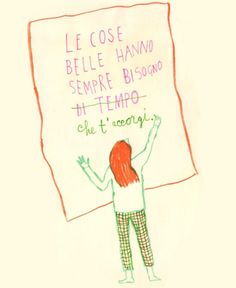 LE COSE
BELLE HANNO
SEMPRE BISOGNO
DI TEMPO
che t'accorgi.